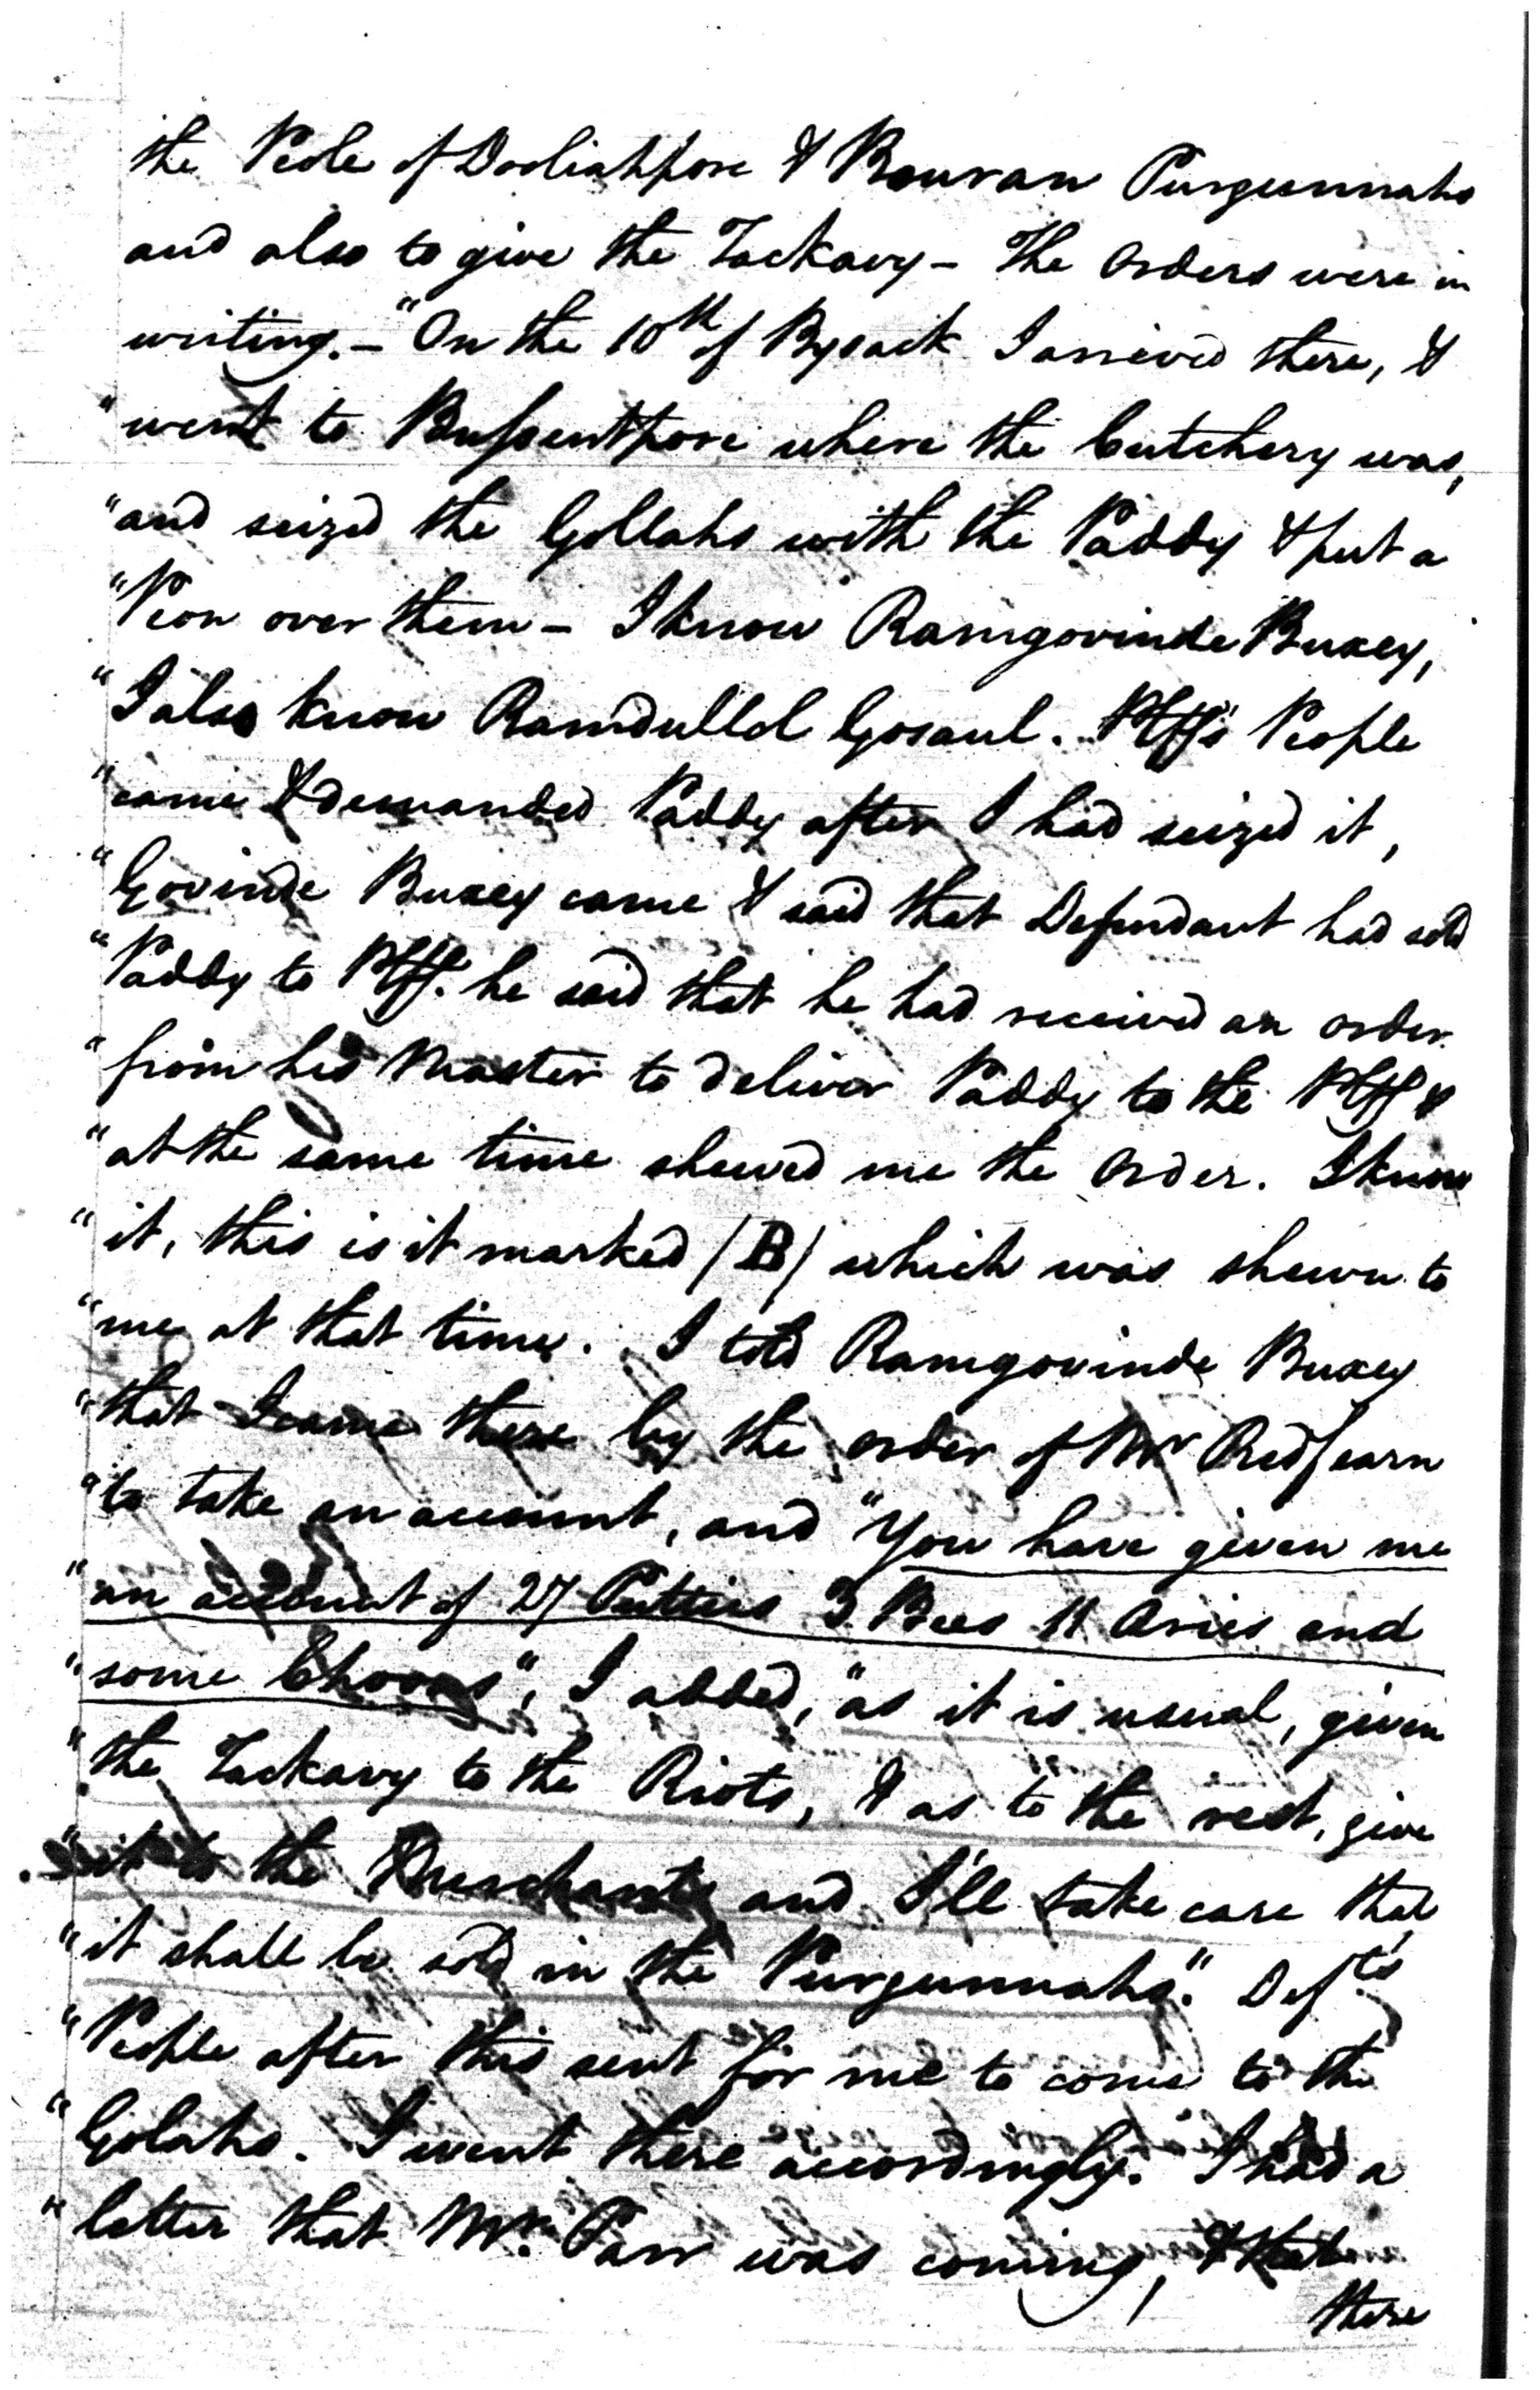 the Peole of Dooliahpore & Bouran Purgunnahs
and also to give the Tackavy - The Orders were in
writing. - "On the 10th of Bysack I arrived there, &
"went to Bussentpore where the Cutchery was,
"and seized the Gollahs with the Paddy & put a
"Peon over them - I know Ramgovinde Buxey,
"I also know Ramdullol Gosaul. Plff's People
"came & demanded Paddy after I had seized it,
"Govinde Buxey came & said that Defendant had sold
"Paddy to Plff. he said that he had received an order
"from his Master to deliver Paddy to the Plff &
"at the same time shewed me the Order. I know
"it, this is it marked /B/ which was shewn to
"me at that time. I told Ramgovinde Buxey
"that I came there by the order of Mr Redfearn
"to take an account, and "You have given me
"an account of 27 Putties 3 Bees 11 Aries and
"some Choons", I added, "as it is usual, given
"the Tackavy to the Riots, & as to the rest, give
"it to the Merchants and I'll take care that
"it shall be sold in the Purgunnahs". Deft's
"People after this sent for me to come to the
"Golahs. I went there accordingly. I had a
"letter that Mr. Parr was coming, & that
there